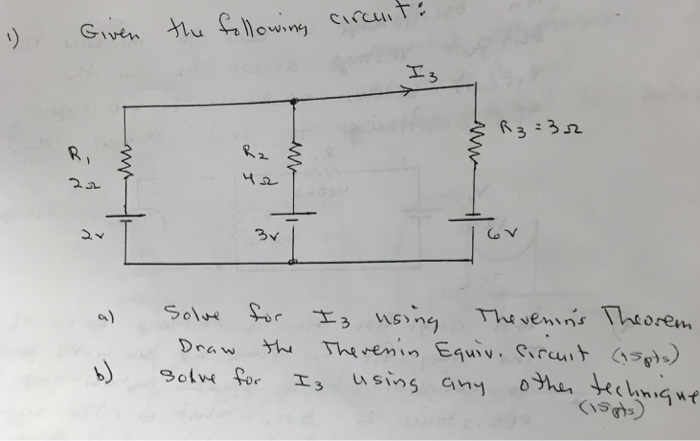 1) Given the following circuit:
I3
R1
2Ω
R2
4Ω
R3 = 3Ω
2v
3v
6v
a) Solve for I3 using Thevenin's Theorem
Draw the Thevenin Equiv. Circuit (15pts)
b) Solve for I3 using any other technique
(15pts)